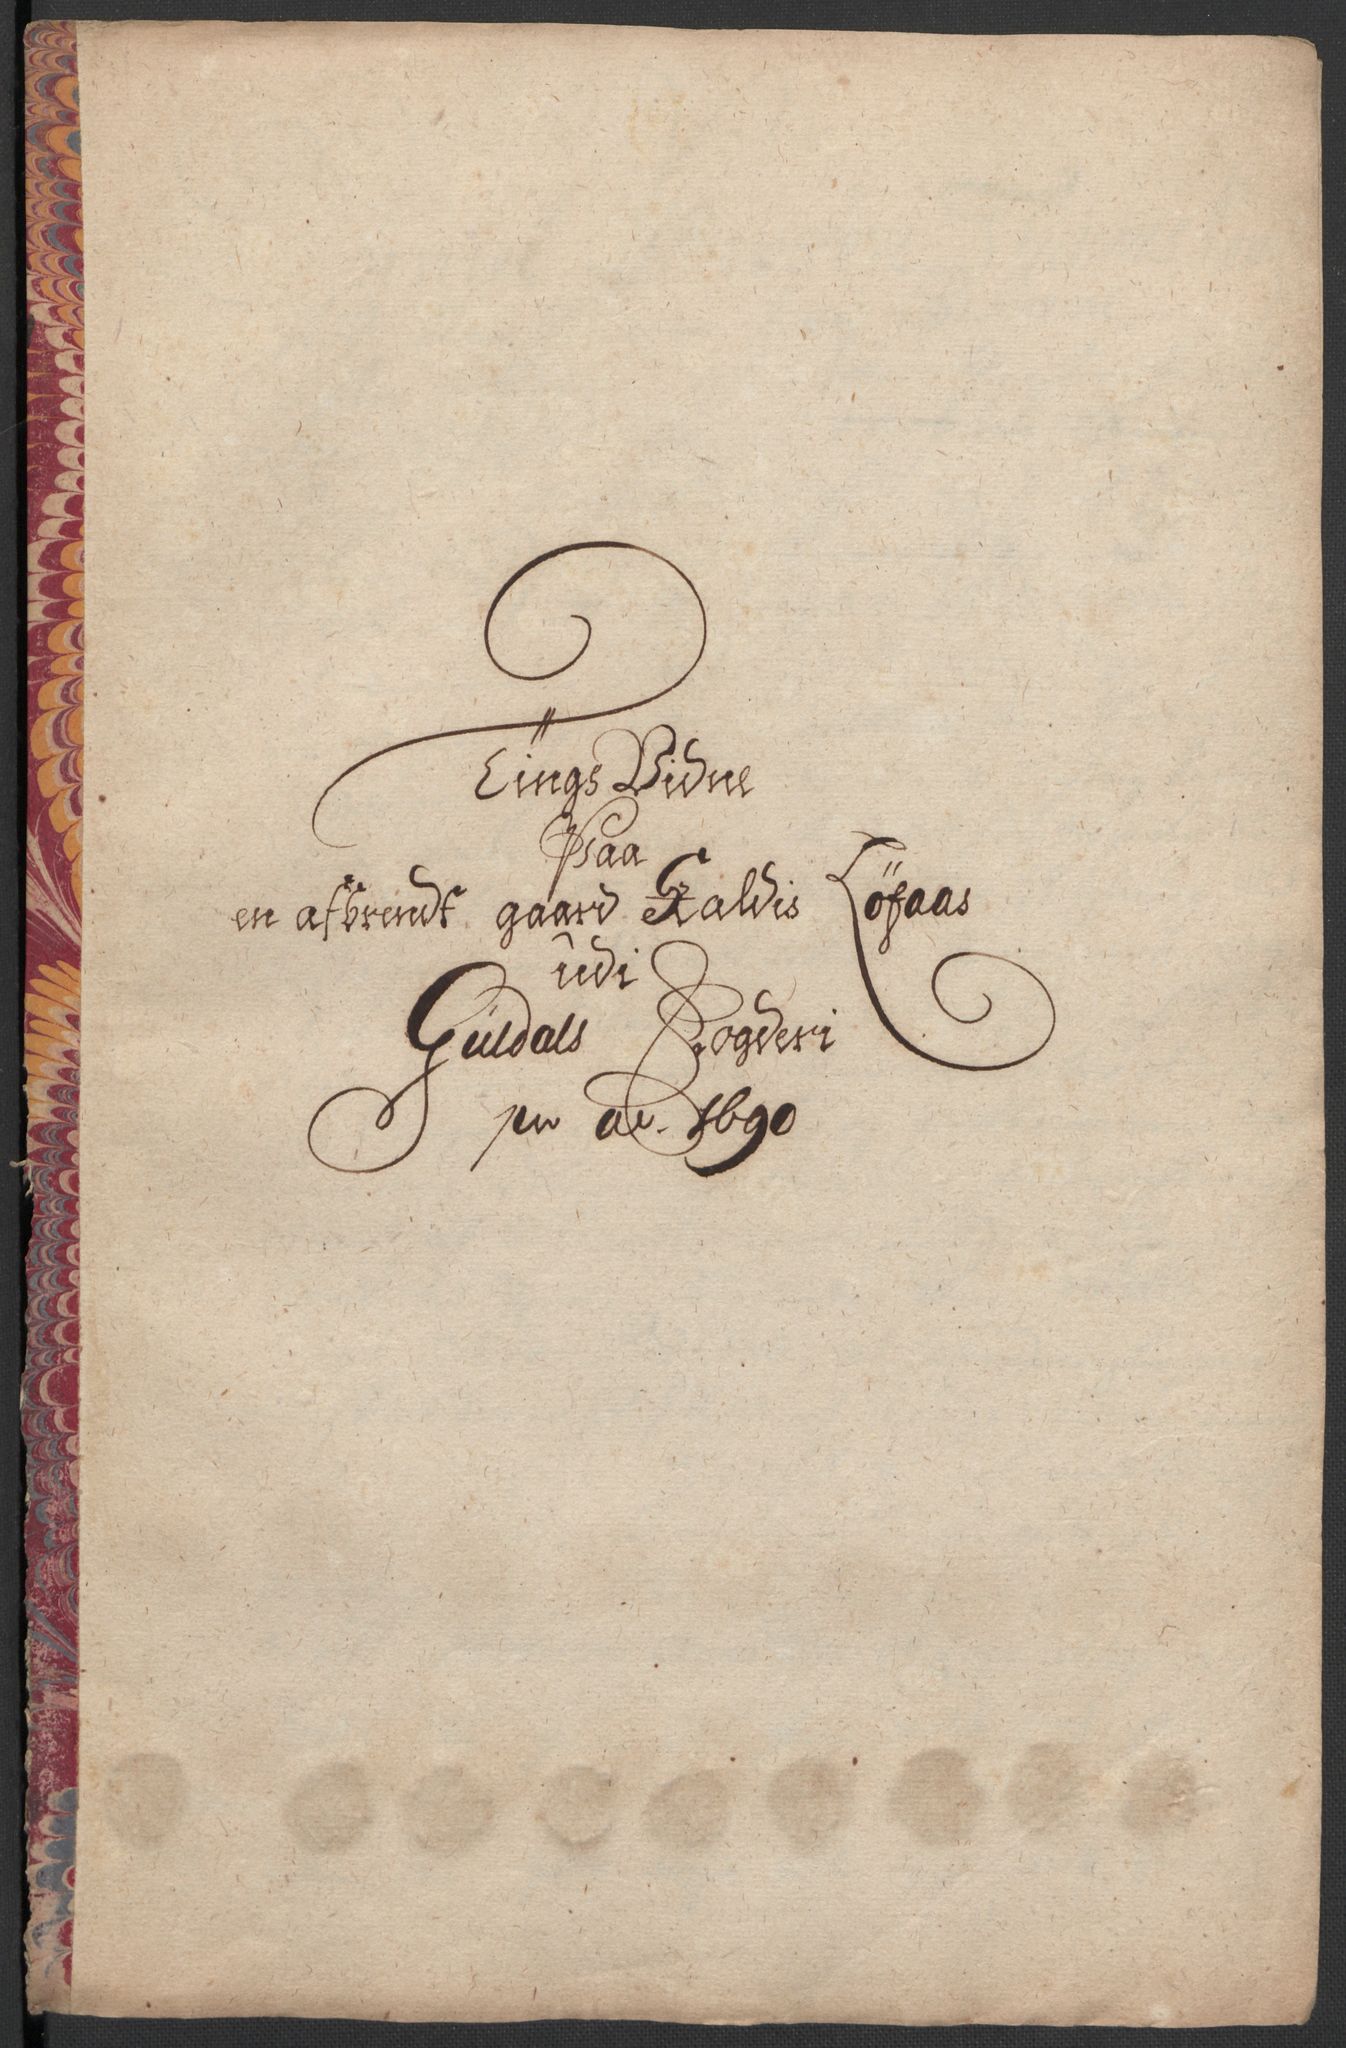 Tings Vidne
Paa
en afbrendt gaard Kaldis Löfaas
udi
Guldals Fogderi
pro ao. 1690